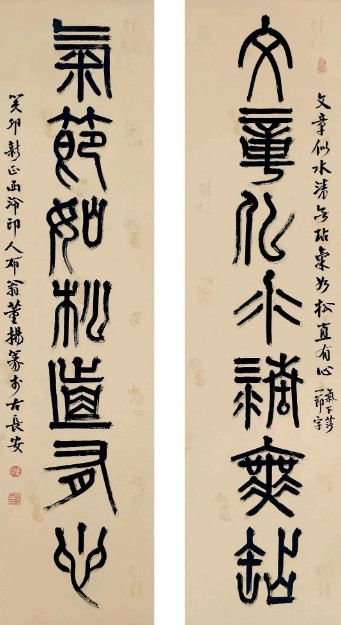 文章似水清無玷
文章似水清無玷氣如松直有心
氣下落
一節字
氣節如松直有心
癸卯新正西泠印人布翁董揚篆於古長安